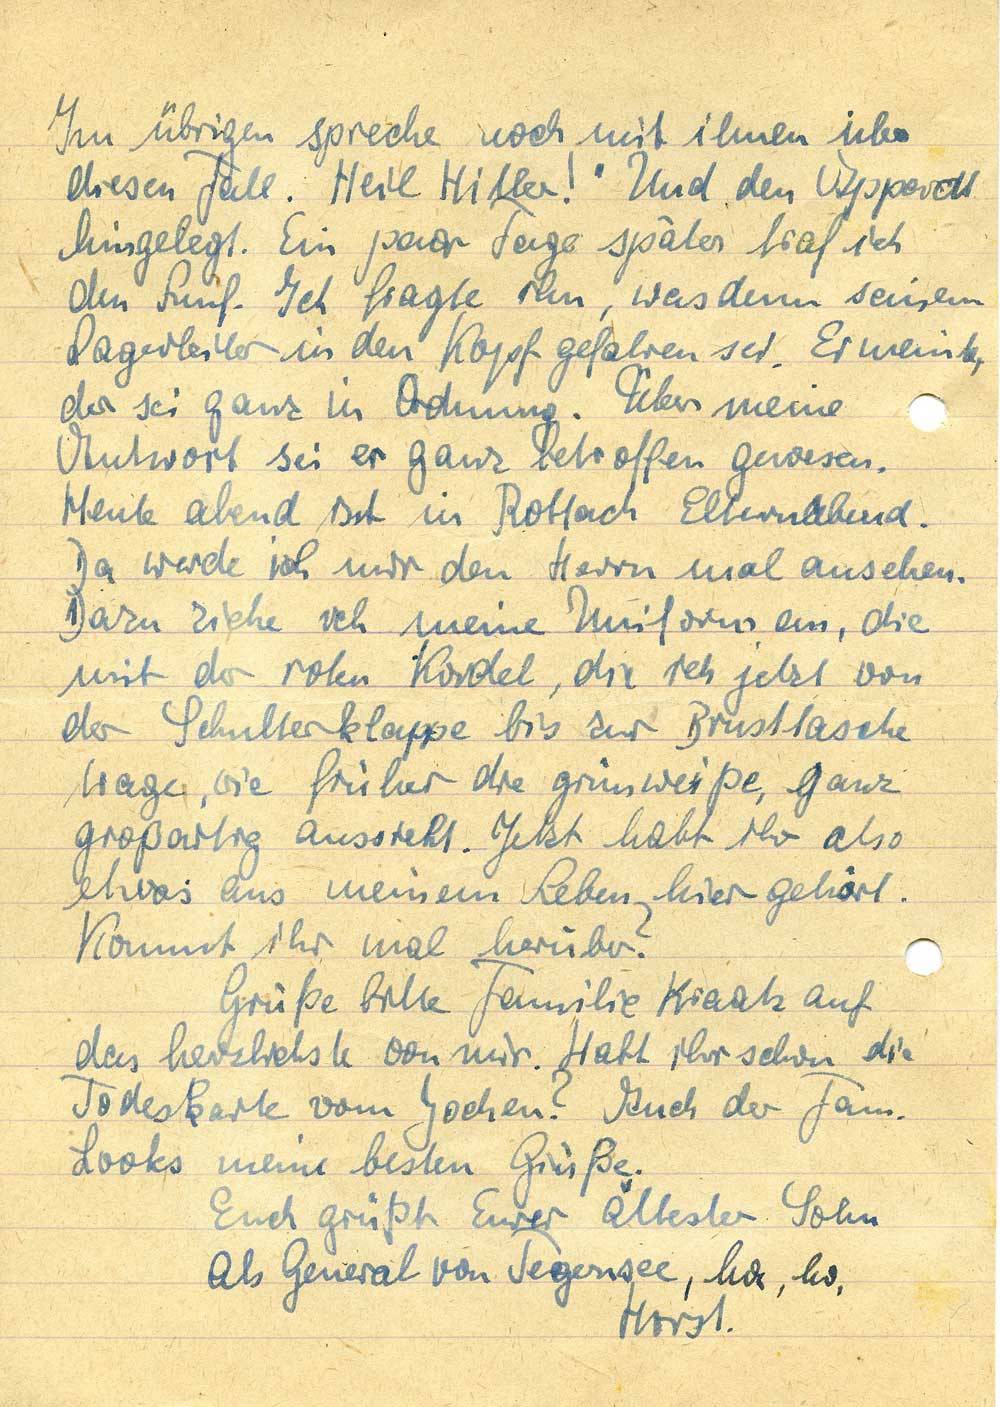 Im übrigen spreche noch mit ihnen über
diesen Fall. Heil Hitler!" Und den Apparat
hingelegt. Ein paar Tage später traf ich
den Ich fragte ihn, was denn seinem
Lagerleiter in den Kopf gefahren sei. Er meinte,
der sei ganz in Ordnung. Über meine
Antwort sei er ganz betroffen gewesen.
Heute abend ist in Rottach Elternabend.
Da werde ich mir den Herrn mal ansehen.
Dazu ziehe ich meine Uniform an, die
mit der roten Kordel, die ich jetzt von
der Schulterklappe bis zur Brusttasche
trage, wie früher die grünweiße, ganz
großartig aussieht. Jetzt habt ihr also
etwas aus meinem Leben hier gehört.
Kommt ihr mal herüber?
Grüße bitte Familie Kraatz auf
das herzlichste von mir. Habt ihr schon die
Todeskarte vom Jochen? Auch der Fam.
Looks meine besten Grüße.
Euch grüßt Eurer ältester Sohn
als General von Tegernsee, ha, ha,
Horst.